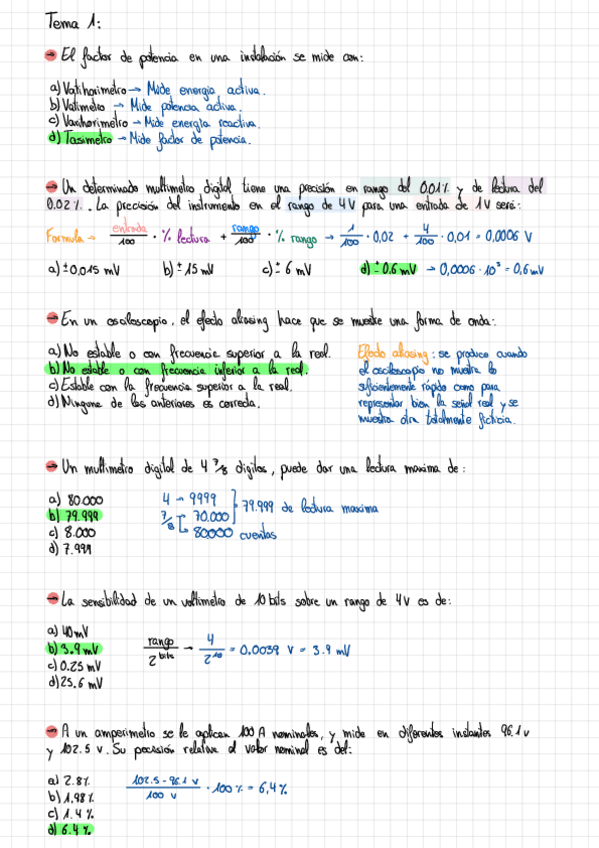 Tema 1:
→ El factor de potencia en una instalación se mide con:
a) Vatihorimetro → Mide energia activa.
b) Vatimetro → Mide potencia activa.
c) Varihorimetro → Mide energía reactiva.
d) Tasimetro → Mide factor de potencia.
→ Un determinado multimetro digital tiene una precisión en rango del 0.01% y de lectura del
0.02%. La precisión del instrumento en el rango de 4V para una entrada de 1V será:
Formula → entrada/100 · % lectura + rango/100 · % rango → 1/100 · 0,02 + 4/100 · 0,01 = 0,0006 V
a) ± 0,015 mV b) ± 15 mV c) ± 6 mV d) ± 0.6 mV → 0,0006 · 10³ = 0,6 mV
→ En un osciloscopio, el efecto aliasing hace que se muestre una forma de onda:
a) No estable o con frecuencia superior a la real.
b) No estable o con frecuencia inferior a la real.
c) Estable con la frecuencia superior a la real.
d) Ninguna de las anteriores es correcta.
Efecto aliasing: se produce cuando
el osciloscopio no muestra lo
suficientemente rápido como para
representar bien la señal real y se
muestra otra totalmente ficticia.
→ Un multimetro digital de 4 7/8 digitos, puede dar una lectura maxima de:
a) 80.000
b) 79.999
c) 8.000
d) 7.999
4 → 9999
7/8 → 70.000
→ 80000 cuentas
79.999 de lectura maxima
→ La sensibilidad de un voltimetro de 10 bits sobre un rango de 4V es de:
a) 40 mV
b) 3.9 mV
c) 0.25 mV
d) 25,6 mV
rango/2^bits → 4/2^10 = 0.0039 V = 3.9 mV
→ A un amperimetro se le aplican 100 A nominales, y mide en diferentes instantes 96.1 v
y 102.5 v. Su precisión relativa al valor nominal es del:
a) 2.8%
b) 1,98%
c) 1.4%
d) 6.4%
102.5 - 96.1 v/100 v · 100% = 6,4%